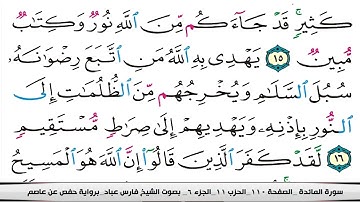 كَثِيرٍۚ قَدۡ جَآءَكُم مِّنَ ٱللَّهِ نُورٞ وَكِتَٰبٞ
مُّبِينٞ ١٥ يَهۡدِي بِهِ ٱللَّهُ مَنِ ٱتَّبَعَ رِضۡوَٰنَهُۥ
سُبُلَ ٱلسَّلَٰمِ وَيُخۡرِجُهُم مِّنَ ٱلظُّلُمَٰتِ إِلَى
ٱلنُّورِ بِإِذۡنِهِۦ وَيَهۡدِيهِمۡ إِلَىٰ صِرَٰطٖ مُّسۡتَقِيمٖ
١٦ لَّقَدۡ كَفَرَ ٱلَّذِينَ قَالُوٓاْ إِنَّ ٱللَّهَ هُوَ ٱلۡمَسِيحُ
سورة المائدة _الصفحة ١١٠_الحزب ١١_الجزء ٦_ بصوت الشيخ فارس عباد_برواية حفص عن عاصم